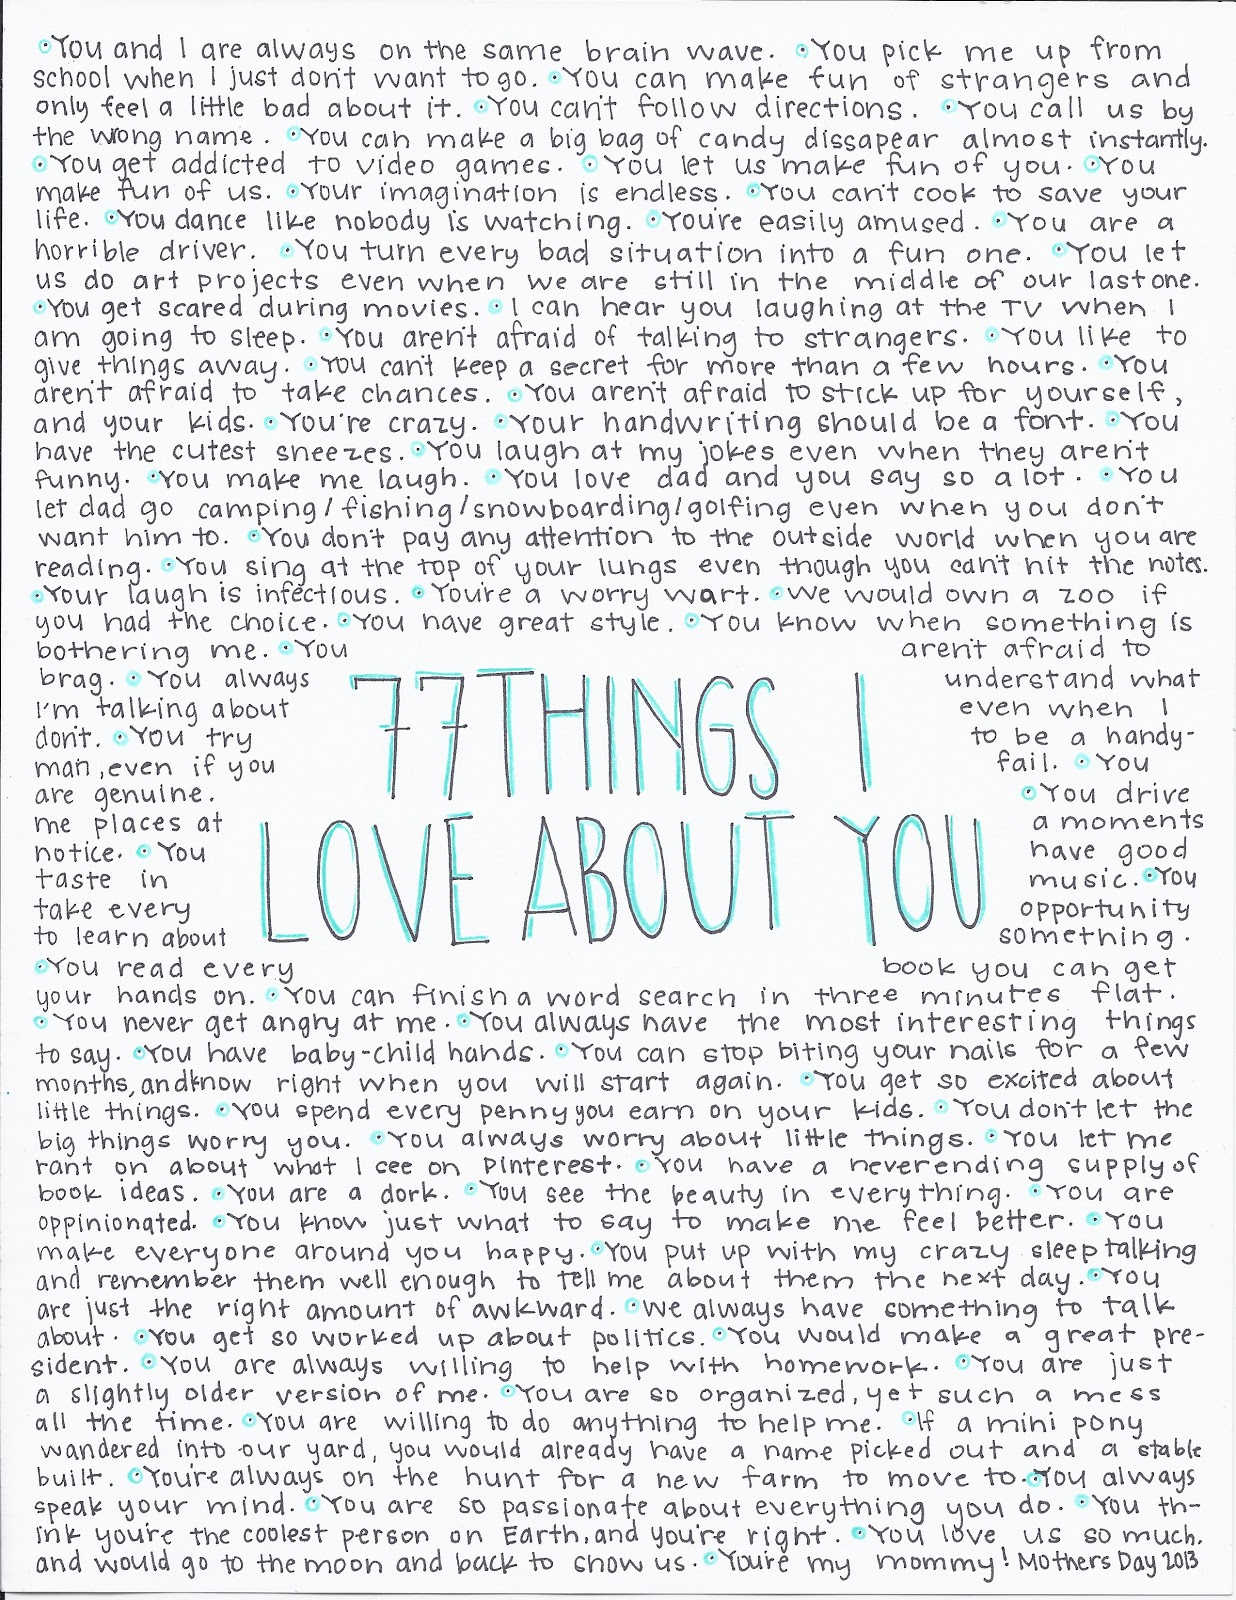 You and I are always on the same brain wave. You pick me up from
school when I just don't want to go. You can make fun of strangers and
only feel a little bad about it. You can't follow directions. You call us by
the wrong name. You can make a big bag of candy dissapear almost instantly.
You get addicted to video games. You let us make fun of you. You
make fun of us. Your imagination is endless. You can't cook to save your
life. You dance like nobody is watching. You're easily amused. You are a
horrible driver. You turn every bad situation into a fun one. You let
us do art projects even when we are still in the middle of our last one.
You get scared during movies. I can hear you laughing at the TV when I
am going to sleep. You aren't afraid of talking to strangers. You like to
give things away. You can't keep a secret for more than a few hours. You
aren't afraid to take chances. You aren't afraid to stick up for yourself,
and your kids. You're crazy. Your handwriting should be a font. You
have the cutest sneezes. You laugh at my jokes even when they aren't
funny. You make me laugh. You love dad and you say so a lot. You
let dad go camping/fishing/snowboarding/golfing even when you don't
want him to. You don't pay any attention to the outside world when you are
reading. You sing at the top of your lungs even though you can't hit the notes.
Your laugh is infectious. You're a worry wart. We would own a zoo if
you had the choice. You have great style. You know when something is
bothering me. You aren't afraid to
brag. You always understand what
I'm talking about even when I
don't. You try to be a handy-
man, even if you fail. You
are genuine. You drive
me places at a moments
notice. You have good
taste in music. You
take every opportunity
to learn about something.
77 THINGS I
LOVE ABOUT YOU
You read every book you can get
your hands on. You can finish a word search in three minutes flat.
You never get angry at me. You always have the most interesting things
to say. You have baby-child hands. You can stop biting your nails for a few
months, and know right when you will start again. You get so excited about
little things. You spend every penny you earn on your kids. You don't let the
big things worry you. You always worry about little things. You let me
rant on about what I see on Pinterest. You have a neverending supply of
book ideas. You are a dork. You see the beauty in everything. You are
oppinionated. You know just what to say to make me feel better. You
make everyone around you happy. You put up with my crazy sleep talking
and remember them well enough to tell me about them the next day. You
are just the right amount of awkward. We always have something to talk
about. You get so worked up about politics. You would make a great pre-
sident. You are always willing to help with homework. You are just
a slightly older version of me. You are so organized, yet such a mess
all the time. You are willing to do anything to help me. If a mini pony
wandered into our yard, you would already have a name picked out and a stable
built. You're always on the hunt for a new farm to move to. You always
speak your mind. You are so passionate about everything you do. You th-
ink you're the coolest person on Earth, and you're right. You love us so much.
and would go to the moon and back to show us. You're my mommy! Mothers Day 2013